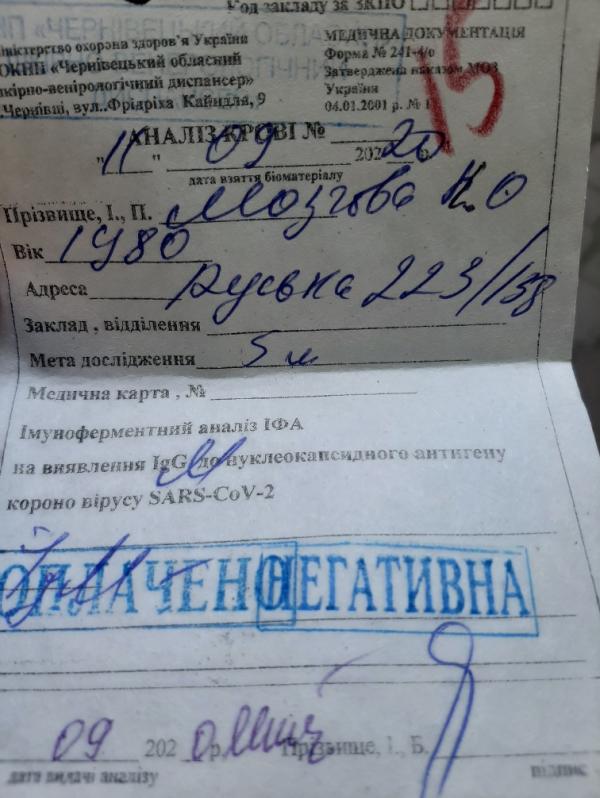 Код закладу за ЗКПО
Міністерство охорони здоров'я України
ОКНП «Чернівецький обласний
шкірно-венірологічний диспансер»
м.Чернівці, вул..Фрідріха Кайндля, 9
МЕДИЧНА ДОКУМЕНТАЦІЯ
Форма № 241-4/о
Затверджена наказом МОЗ
України
04.01.2001 р. № 1
15
АНАЛІЗ КРОВІ №
"11" 09 2020 р.
дата взяття біоматеріалу
Прізвище, І., П. Мозгова К.О
Вік 1980
Адреса Руська 223/158
Заклад , відділення
Мета дослідження
Медична карта , №
Імуноферментний аналіз ІФА
на виявлення IgG M до нуклеокапсидного антигену
короно вірусу SARS-CoV-2
ОПЛАЧЕНО НЕГАТИВНА
09 2020 р. Прізвище, І., Б.
дата видачі аналізу підпис